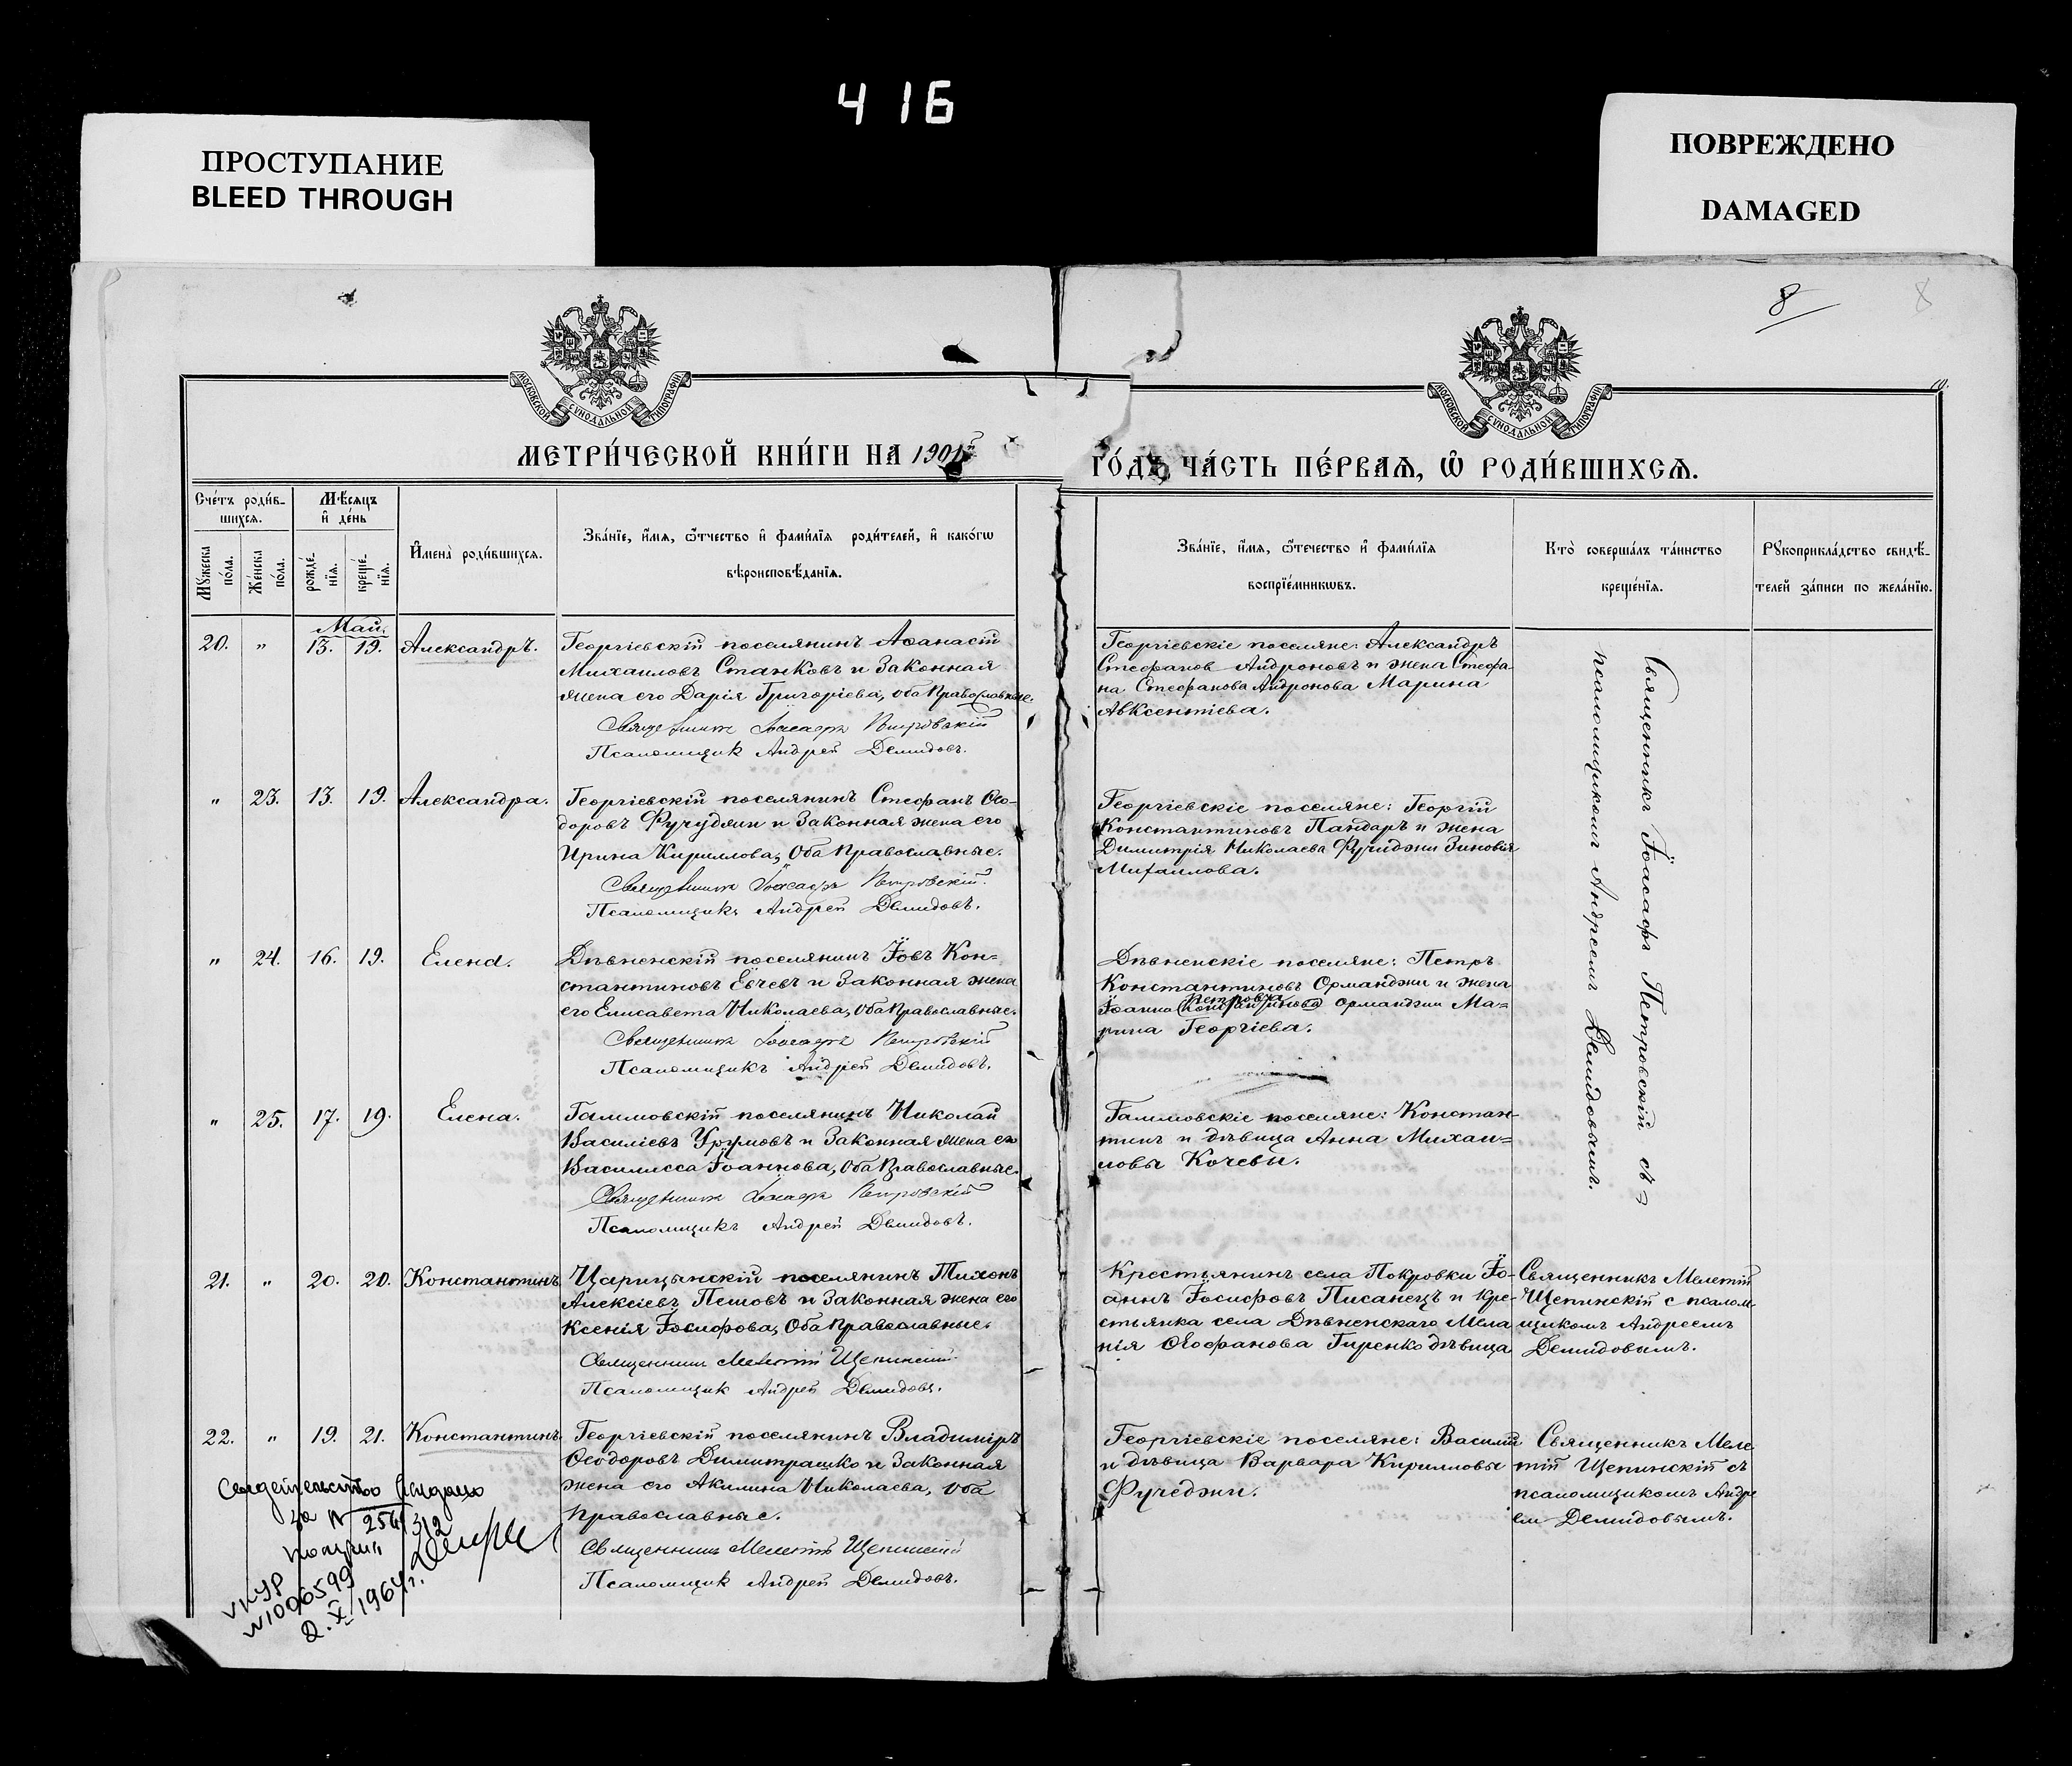 416
ПРОСТУПАНИЕ
BLEED THROUGH
ПОВРЕЖДЕНО
DAMAGED
8
8
МОСКОВСКОЙ СУНОДАЛЬНОЙ ТИПОГРАФІИ
МОСКОВСКОЙ СУНОДАЛЬНОЙ ТИПОГРАФІИ
МЕТРИ́ЧЕСКОЙ КНИ́ГИ НА 1901й
ГО́ДЪ ЧА́СТЬ ПЕ́РВАѦ, Ѿ РОДИ́ВШИХСѦ.
Сче́тъ роди́в-
шихсѧ.
Мѣ́сѧцъ
и҆ де́нь
Му́жеска
по́ла.
Же́нска
по́ла.
рожде́-
нїѧ.
креще́-
нїѧ.
И҆мена̀ роди́вшихсѧ.
Зва́нїе, и҆́мѧ, ѿ́тчество и҆ фами́лїѧ роди́телей, и҆ како́гѡ
вѣроисповѣ́данїѧ.
Зва́нїе, и҆́мѧ, ѿ́течество и҆ фами́лїѧ
воспрїе́мникѡвъ.
Кто̀ соверша́лъ та́инство
креще́нїѧ.
Рукоприкла́дство свидѣ́-
телей за́писи по жела́нїю.
Май.
20. " 13. 19. Александръ.
Георгіевскій поселянинъ Аѳанасій
Михаиловъ Станковъ и законная
жена его Дарія Григоріева, оба православные.
Священникъ Іоасафъ Петровскій
Псаломщик Андрей Демидовъ.
Георгіевскіе поселяне: Александръ
Стефанов Андроновъ и жена Стефа-
на Стефанова Андронова Марина
Авксентіева.
Священникъ Іоасафъ Петровскій съ
псаломщикомъ Андреемъ Демидовымъ.
" 23. 13. 19. Александра.
Георгіевскій поселянинъ Стефанъ Ѳео-
доровъ Фучуджи и законная жена его
Ирина Кириллова, оба православные.
Священникъ Іоасафъ Петровскій
Псаломщикъ Андрей Демидовъ.
Георгіевскіе поселяне: Георгій
Константиновъ Пандаръ и жена
Димитрія Николаева Зиновія
Михаилова.
" 24. 16. 19. Елена.
Дѣвненскій поселянинъ Іовъ Кон-
стантиновъ Ёвчевъ и законная жена
его Елисавета Николаева, оба православные.
Священникъ Іоасафъ Петровскій
Псаломщикъ Андрей Демидовъ.
Дѣвненскіе поселяне: Петръ
Константиновъ Орманджи и жена
Петрова
Іоанна (Константинова) Орманджи Ма-
рина Георгіева.
" 25. 17. 19. Елена.
Галимовскій поселянинъ Николай
Василіевъ Урумовъ и законная жена его
Василисса Іоаннова, оба православные.
Священникъ Іоасафъ Петровскій
Псаломщикъ Андрей Демидовъ.
Галимовскіе поселяне: Констан-
тинъ и дѣвица Анна Михаи-
ловы Кочевы.
21. " 20. 20. Константинъ
Царицынскій поселянинъ Тихонъ
Алексіевъ Пешовъ и законная жена его
Ксенія Іосифова, оба православные.
Священникъ Мелетій Щепинскій
Псаломщик Андрей Демидовъ.
Крестьянинъ села Покровки Іо-
аннъ Іосифовъ Писанецъ и кре-
стьянка села Дѣвненскаго Мела
нія Ѳеофанова Гиренко дѣвица
Священникъ Мелетій
Щепинскій с псалом-
щикомъ Андреемъ
Демидовымъ.
22. " 19. 21. Константинъ.
Георгіевскій поселянинъ Владиміръ
Ѳеодоровъ Димитрашко и законная
жена его Акилина Николаева, оба
православные.
Священникъ Мелетій Щепинскій
Псаломщик Андрей Демидовъ.
Георгіевскіе поселяне: Василій
и дѣвица Варвара Кирилловы
Фучеджи.
Священникъ Меле
тій Щепинскій съ
псаломщикомъ Андре
ем Демидовымъ.
Свидетельство
за №
2. X 1964 г.